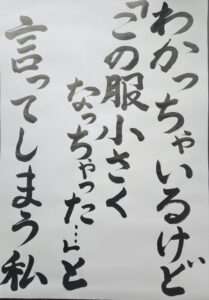 わかっちゃいるけど
「この服小さく
なっちゃった…」と
言ってしまう私